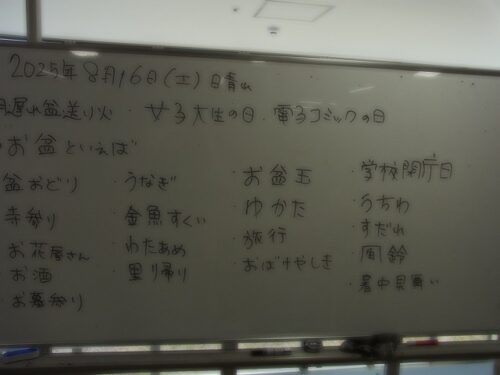 2025年8月16日(土) 日晴れ
月遅れ盆送り火 ・女子大生の日 ・電子コミックの日
お盆といえば
盆おどり
寺参り
お花屋さん
・お酒
お墓参り
・うなぎ
・金魚すくい
・わたあめ
・里り帰り
・お盆玉
・ゆかた
・旅行
・おばけやしき
・学校閉庁日
・うちわ
・すだれ
・風鈴
・暑中見舞い